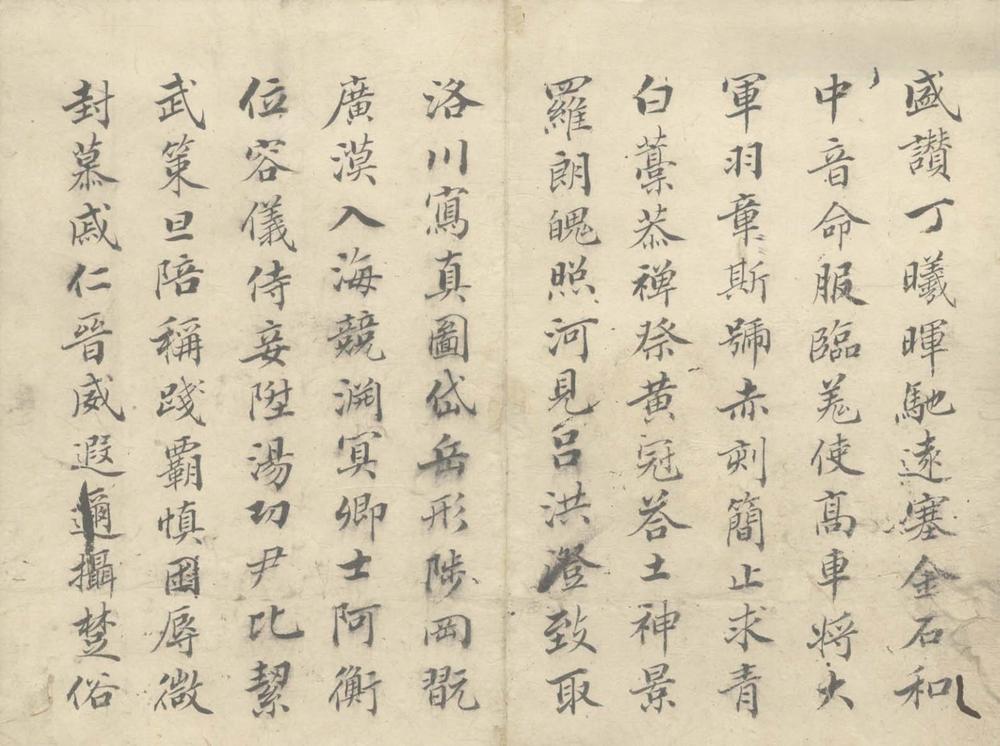 盛讚丁曦暉馳遠塞金石和
中音命服臨羌使高車將大
軍羽章斯號赤刻簡止求青
白藁恭禪祭黃冠荅土神景
羅朗魄照河見呂洪澄致取
洛川寫真圖岱岳形陟岡翫
廣漠入海競淵冥卿士阿衡
位容儀侍妾陞湯功尹比絜
武策旦陪稱踐霸慎辱微
封慕戚仁晉威遐邇攝楚俗